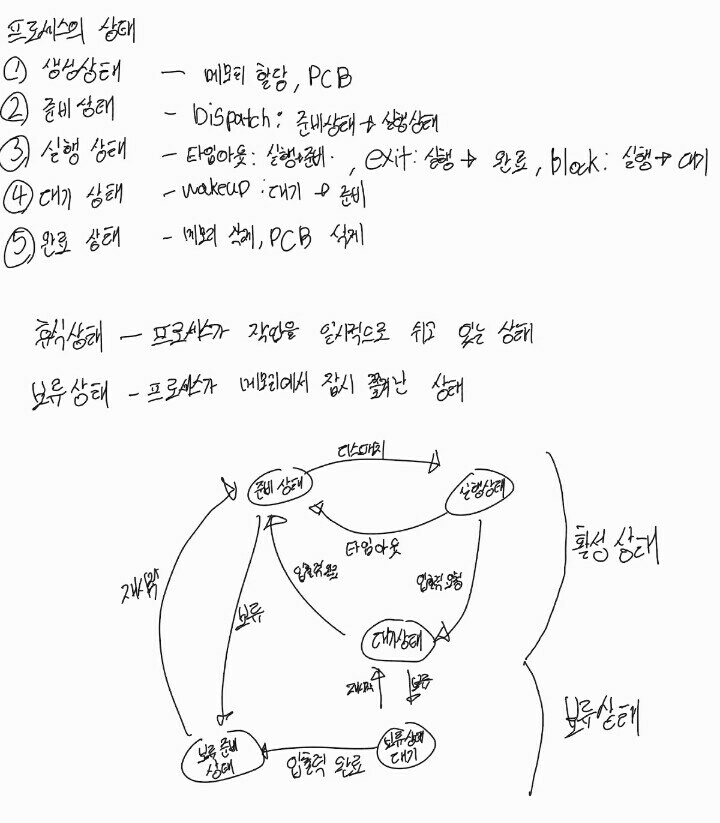 프로세스의 상태
① 생성상태 — 메모리 할당, PCB
② 준비상태 - Dispatch: 준비상태 → 실행상태
③ 실행 상태 - 타임아웃: 실행→준비, exit: 실행 → 완료, block: 실행 → 대기
④ 대기 상태 - wakeup: 대기 → 준비
⑤ 완료 상태 - 메모리 삭제, PCB 삭제
휴식상태 — 프로세스가 작업을 일시적으로 쉬고 있는 상태
보류상태 - 프로세스가 메모리에서 잠시 쫓겨난 상태
디스패치
준비 상태
실행상태
타임아웃
활성 상태
입출력 완료
입출력 요청
재시작
보류
대기상태
재시작
보류
보류상태
보류 준비
상태
입출력 완료
보류상태
대기